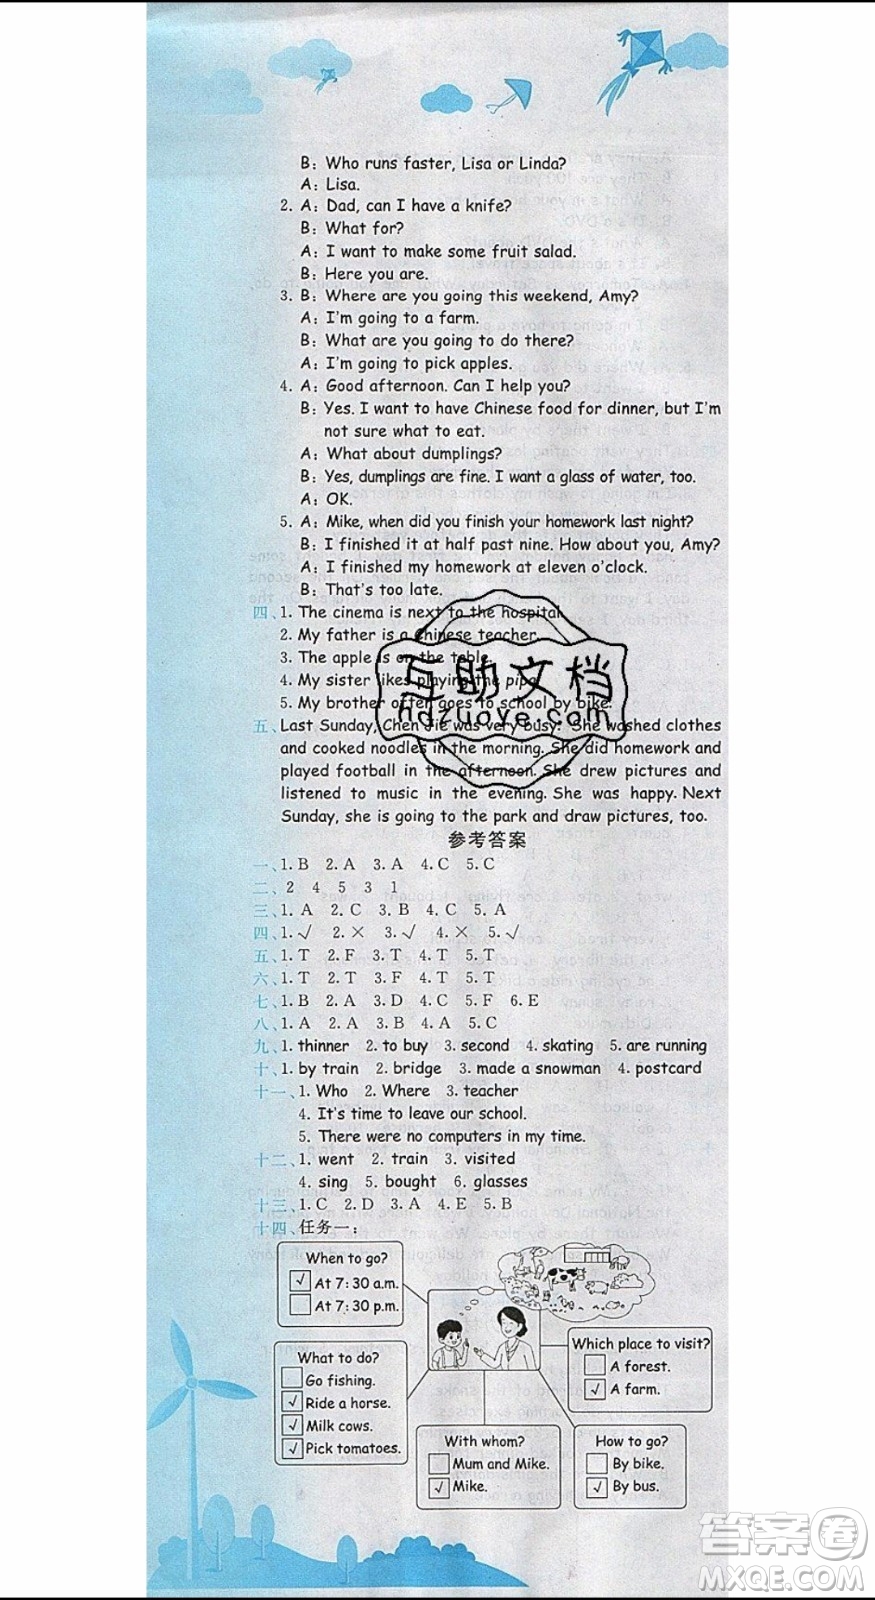 B: Who runs faster, Lisa or Linda?
A: Lisa.
2. A: Dad, can I have a knife?
B: What for?
A: I want to make some fruit salad.
B: Here you are.
3. B: Where are you going this weekend, Amy?
A: I'm going to a farm.
B: What are you going to do there?
A: I'm going to pick apples.
4. A: Good afternoon. Can I help you?
B: Yes. I want to have Chinese food for dinner, but I'm
not sure what to eat.
A: What about dumplings?
B: Yes, dumplings are fine. I want a glass of water, too.
A: OK.
5. A: Mike, when did you finish your homework last night?
B: I finished it at half past nine. How about you, Amy?
A: I finished my homework at eleven o'clock.
B: That's too late.
四、1. The cinema is next to the hospital.
2. My father is a Chinese teacher.
3. The apple is on the table.
4. My sister likes playing the pipa.
5. My brother often goes to school by bike.
五、Last Sunday, Chen Jie was very busy. She washed clothes
and cooked noodles in the morning. She did homework and
played football in the afternoon. She drew pictures and
listened to music in the evening. She was happy. Next
Sunday, she is going to the park and draw pictures, too.
互助文档
hdzuowe.com
参考答案
一、1. B 2. A 3. A 4. C 5. C
二、2 4 5 3 1
三、1. A 2. C 3. B 4. C 5. A
四、1. √ 2. × 3. √ 4. × 5. √
五、1. T 2. F 3. T 4. T 5. T
六、1. T 2. T 3. F 4. T 5. T
七、1. B 2. A 3. D 4. C 5. F 6. E
八、1. A 2. A 3. B 4. A 5. C
九、1. thinner 2. to buy 3. second 4. skating 5. are running
十、1. by train 2. bridge 3. made a snowman 4. postcard
十一、1. Who 2. Where 3. teacher
4. It's time to leave our school.
5. There were no computers in my time.
十二、1. went 2. train 3. visited
4. sing 5. bought 6. glasses
十三、1. C 2. D 3. A 4. E 5. B
十四、任务一：
When to go?
√ At 7:30 a.m.
At 7:30 p.m.
What to do?
Go fishing.
√ Ride a horse.
√ Milk cows.
√ Pick tomatoes.
Which place to visit?
A forest.
√ A farm.
With whom?
Mum and Mike.
√ Mike.
How to go?
By bike.
√ By bus.
答案圈
MXQE.COM